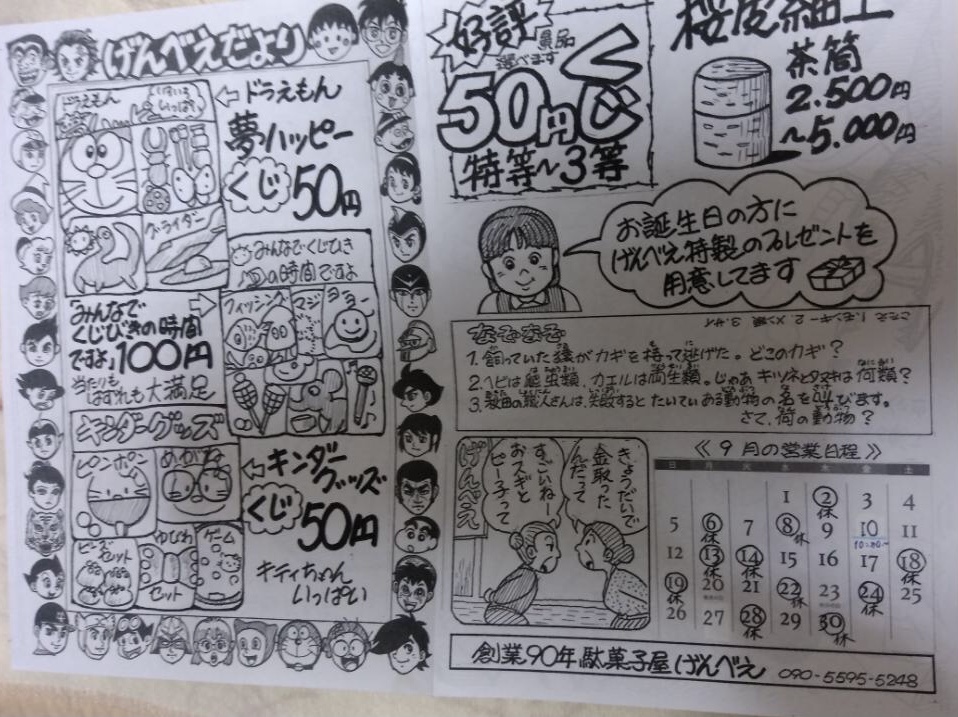 げんべえだより
ドラえもん
いろいろ
いっぱい
⇦ドラえもん
夢ハッピー
くじ 50円
グライダー
みんなでくじびき
の時間ですよ
「みんなで
くじびきの時間
ですよ」100円
当たりも
はずれも大満足
フィッシング
マジ
ヨーヨー
キンダーグッズ
ピンポン
めがね
ビーズ
セット
ゆびわ
セット
ゲーム
⇦キンダー
グッズ
くじ 50円
キティちゃん
いっぱい
好評
景品
選べます
50円くじ
特等~3等
桜皮細工
茶筒
2.500円
~5.000円
お誕生日の方に
げんべえ特製のプレゼントを
用意してます
なぞなぞ
こたえ 1.モンキー 2.メン類 3.サイ
1. 飼っていた猿がカギを持って逃げた。どこのカギ?
2. ヘビは爬虫類、カエルは両生類。じゃあ キツネとタヌキは何類?
3. 秋田の職人さんは、失敗するとたいていある動物の名を叫びます。
さて、何の動物?
きょうだいで
金取った
んだって
すごいねー
おスギと
ピー子って
げんべえ
《9月の営業日程》
日 月 火 水 木 金 土
1 2 3 4
休
5 6 7 8 9 10 11
休 休
12 13 14 15 16 17 18
休 休 休
19 20 21 22 23 24 25
休 休 休
26 27 28 29 30
休 休
創業90年 駄菓子屋 げんべえ 090-5595-5248